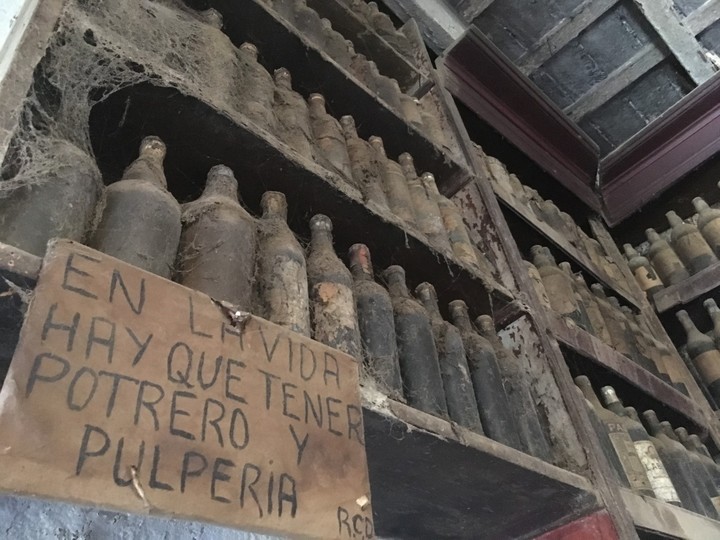 EN LA VIDA
HAY QUE TENER
POTRERO Y
PULPERIA
R.C.D